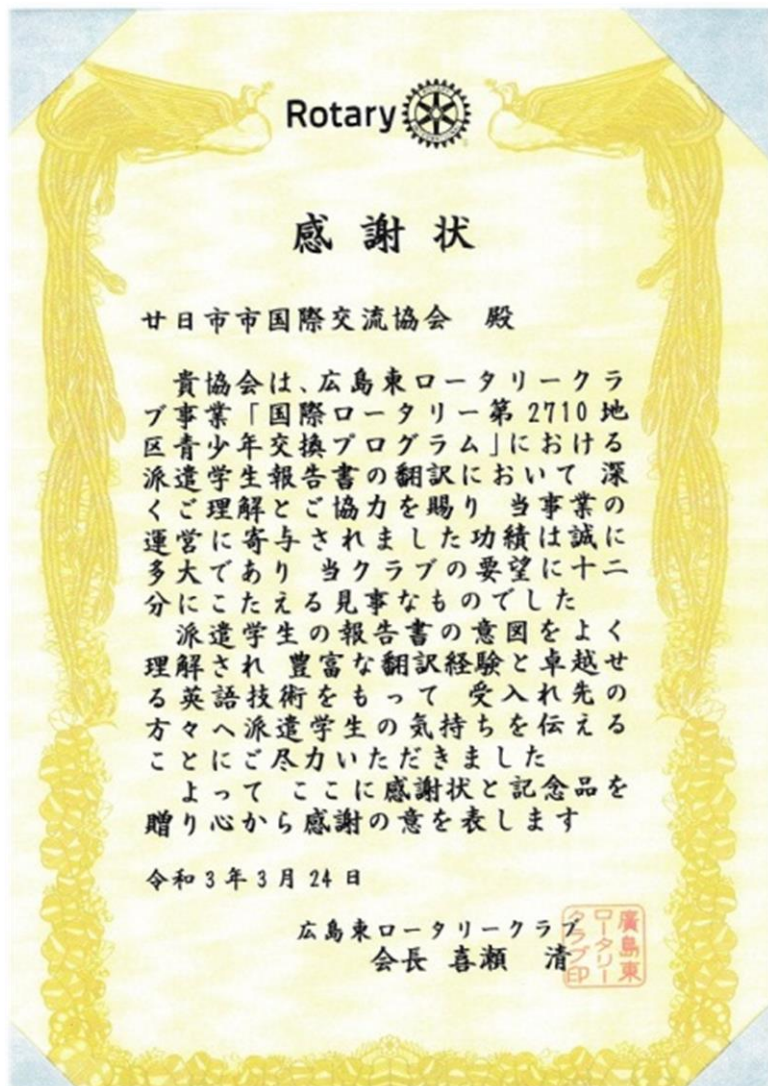 Rotary
感謝状
廿日市市国際交流協会 殿
貴協会は、広島東ロータリークラ
ブ事業「国際ロータリー第2710地
区青少年交換プログラム」における
派遣学生報告書の翻訳において 深
くご理解とご協力を賜り 当事業の
運営に寄与されました功績は誠に
多大であり 当クラブの要望に十二
分にこたえる見事なものでした
派遣学生の報告書の意図をよく
理解され 豊富な翻訳経験と卓越せ
る英語技術をもって 受入れ先の
方々へ派遣学生の気持ちを伝える
ことにご尽力いただきました
よって ここに感謝状と記念品を
贈り心から感謝の意を表します
令和3年3月24日
広島東ロータリークラブ
会長 喜瀬 清
廣島東
ロータリー
クラブ印